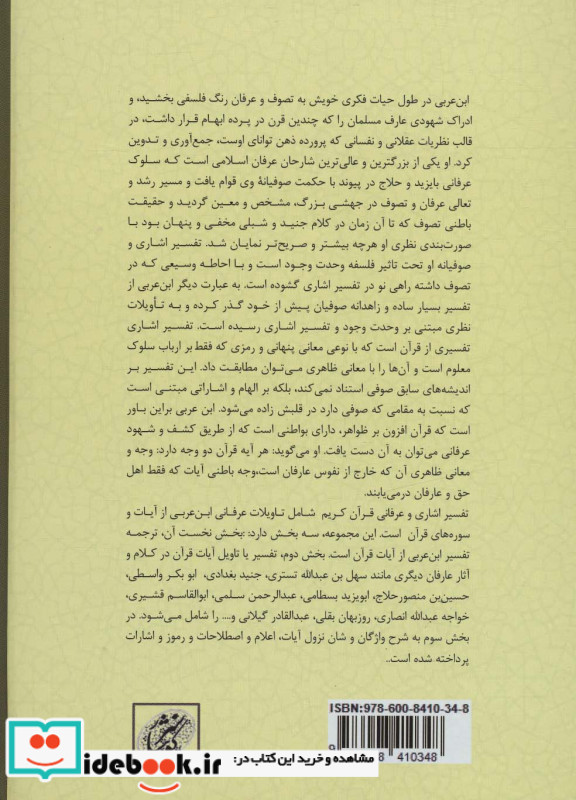 ابن‌عربی در طول حیات فکری خویش به تصوف و عرفان رنگ فلسفی بخشید، و
ادراک شهودی عارف مسلمان را که چندین قرن در پرده ابهام قرار داشت، در
قالب نظریات عقلانی و نفسانی که پرورده ذهن توانای اوست، جمع‌آوری و تدوین
کرد. او یکی از بزرگترین و عالی‌ترین شارحان عرفان اسلامی است که سلوک
عرفانی بایزید و حلاج در پیوند با حکمت صوفیانهٔ وی قوام یافت و مسیر رشد و
تعالی عرفان و تصوف در جهشی بزرگ، مشخص و معین گردید و حقیقت
باطنی تصوف که تا آن زمان در کلام جنید و شبلی مخفی و پنهان بود با
صورت‌بندی نظری او هرچه بیشتر و صریح‌تر نمایان شد. تفسیر اشاری و
صوفیانه او تحت تاثیر فلسفه وحدت وجود است و با احاطه وسیعی که در
تصوف داشته راهی نو در تفسیر اشاری گشوده است. به عبارت دیگر ابن‌عربی از
تفسیر بسیار ساده و زاهدانه صوفیان پیش از خود گذر کرده و به تأویلات
نظری مبتنی بر وحدت وجود و تفسیر اشاری رسیده است. تفسیر اشاری
تفسیری از قرآن است که با نوعی معانی پنهانی و رمزی که فقط بر ارباب سلوک
معلوم است و آن‌ها را با معانی ظاهری می‌توان مطابقت داد. این تفسیر بر
اندیشه‌های سابق صوفی استناد نمی‌کند، بلکه بر الهام و اشاراتی مبتنی است
که نسبت به مقامی که صوفی دارد در قلبش زاده می‌شود. ابن عربی براین باور
است که قرآن افزون بر ظواهر، دارای بواطنی است که از طریق کشف و شهود
عرفانی می‌توان به آن دست یافت. او می‌گوید: هر آیه قرآن دو وجه دارد: وجه و
معانی ظاهری آن که خارج از نفوس عارفان است،وجه باطنی آیات که فقط اهل
حق و عارفان درمی‌یابند.
تفسیر اشاری و عرفانی قرآن کریم شامل تاویلات عرفانی ابن‌عربی از آیات و
سوره‌های قرآن است. این مجموعه، سه بخش دارد: :بخش نخست آن، ترجمه
تفسیر ابن‌عربی از آیات قرآن است. بخش دوم، تفسیر یا تاویل آیات قرآن در کلام و
آثار عارفان دیگری مانند سهل بن عبدالله تستری، جنید بغدادی، ابو بکر واسطی،
حسین‌بن منصورحلاج، ابویزید بسطامی، عبدالرحمن سلمی، ابوالقاسم قشیری،
خواجه عبدالله انصاری، روزبهان بقلی، عبدالقادر گیلانی و.... را شامل می‌شود. در
بخش سوم به شرح واژگان و شان نزول آیات، اعلام و اصطلاحات و رموز و اشارات
پرداخته شده است..
ISBN: 978-600-8410-34-8
410348
مشاهده و خرید این کتاب در:
idebook.ir